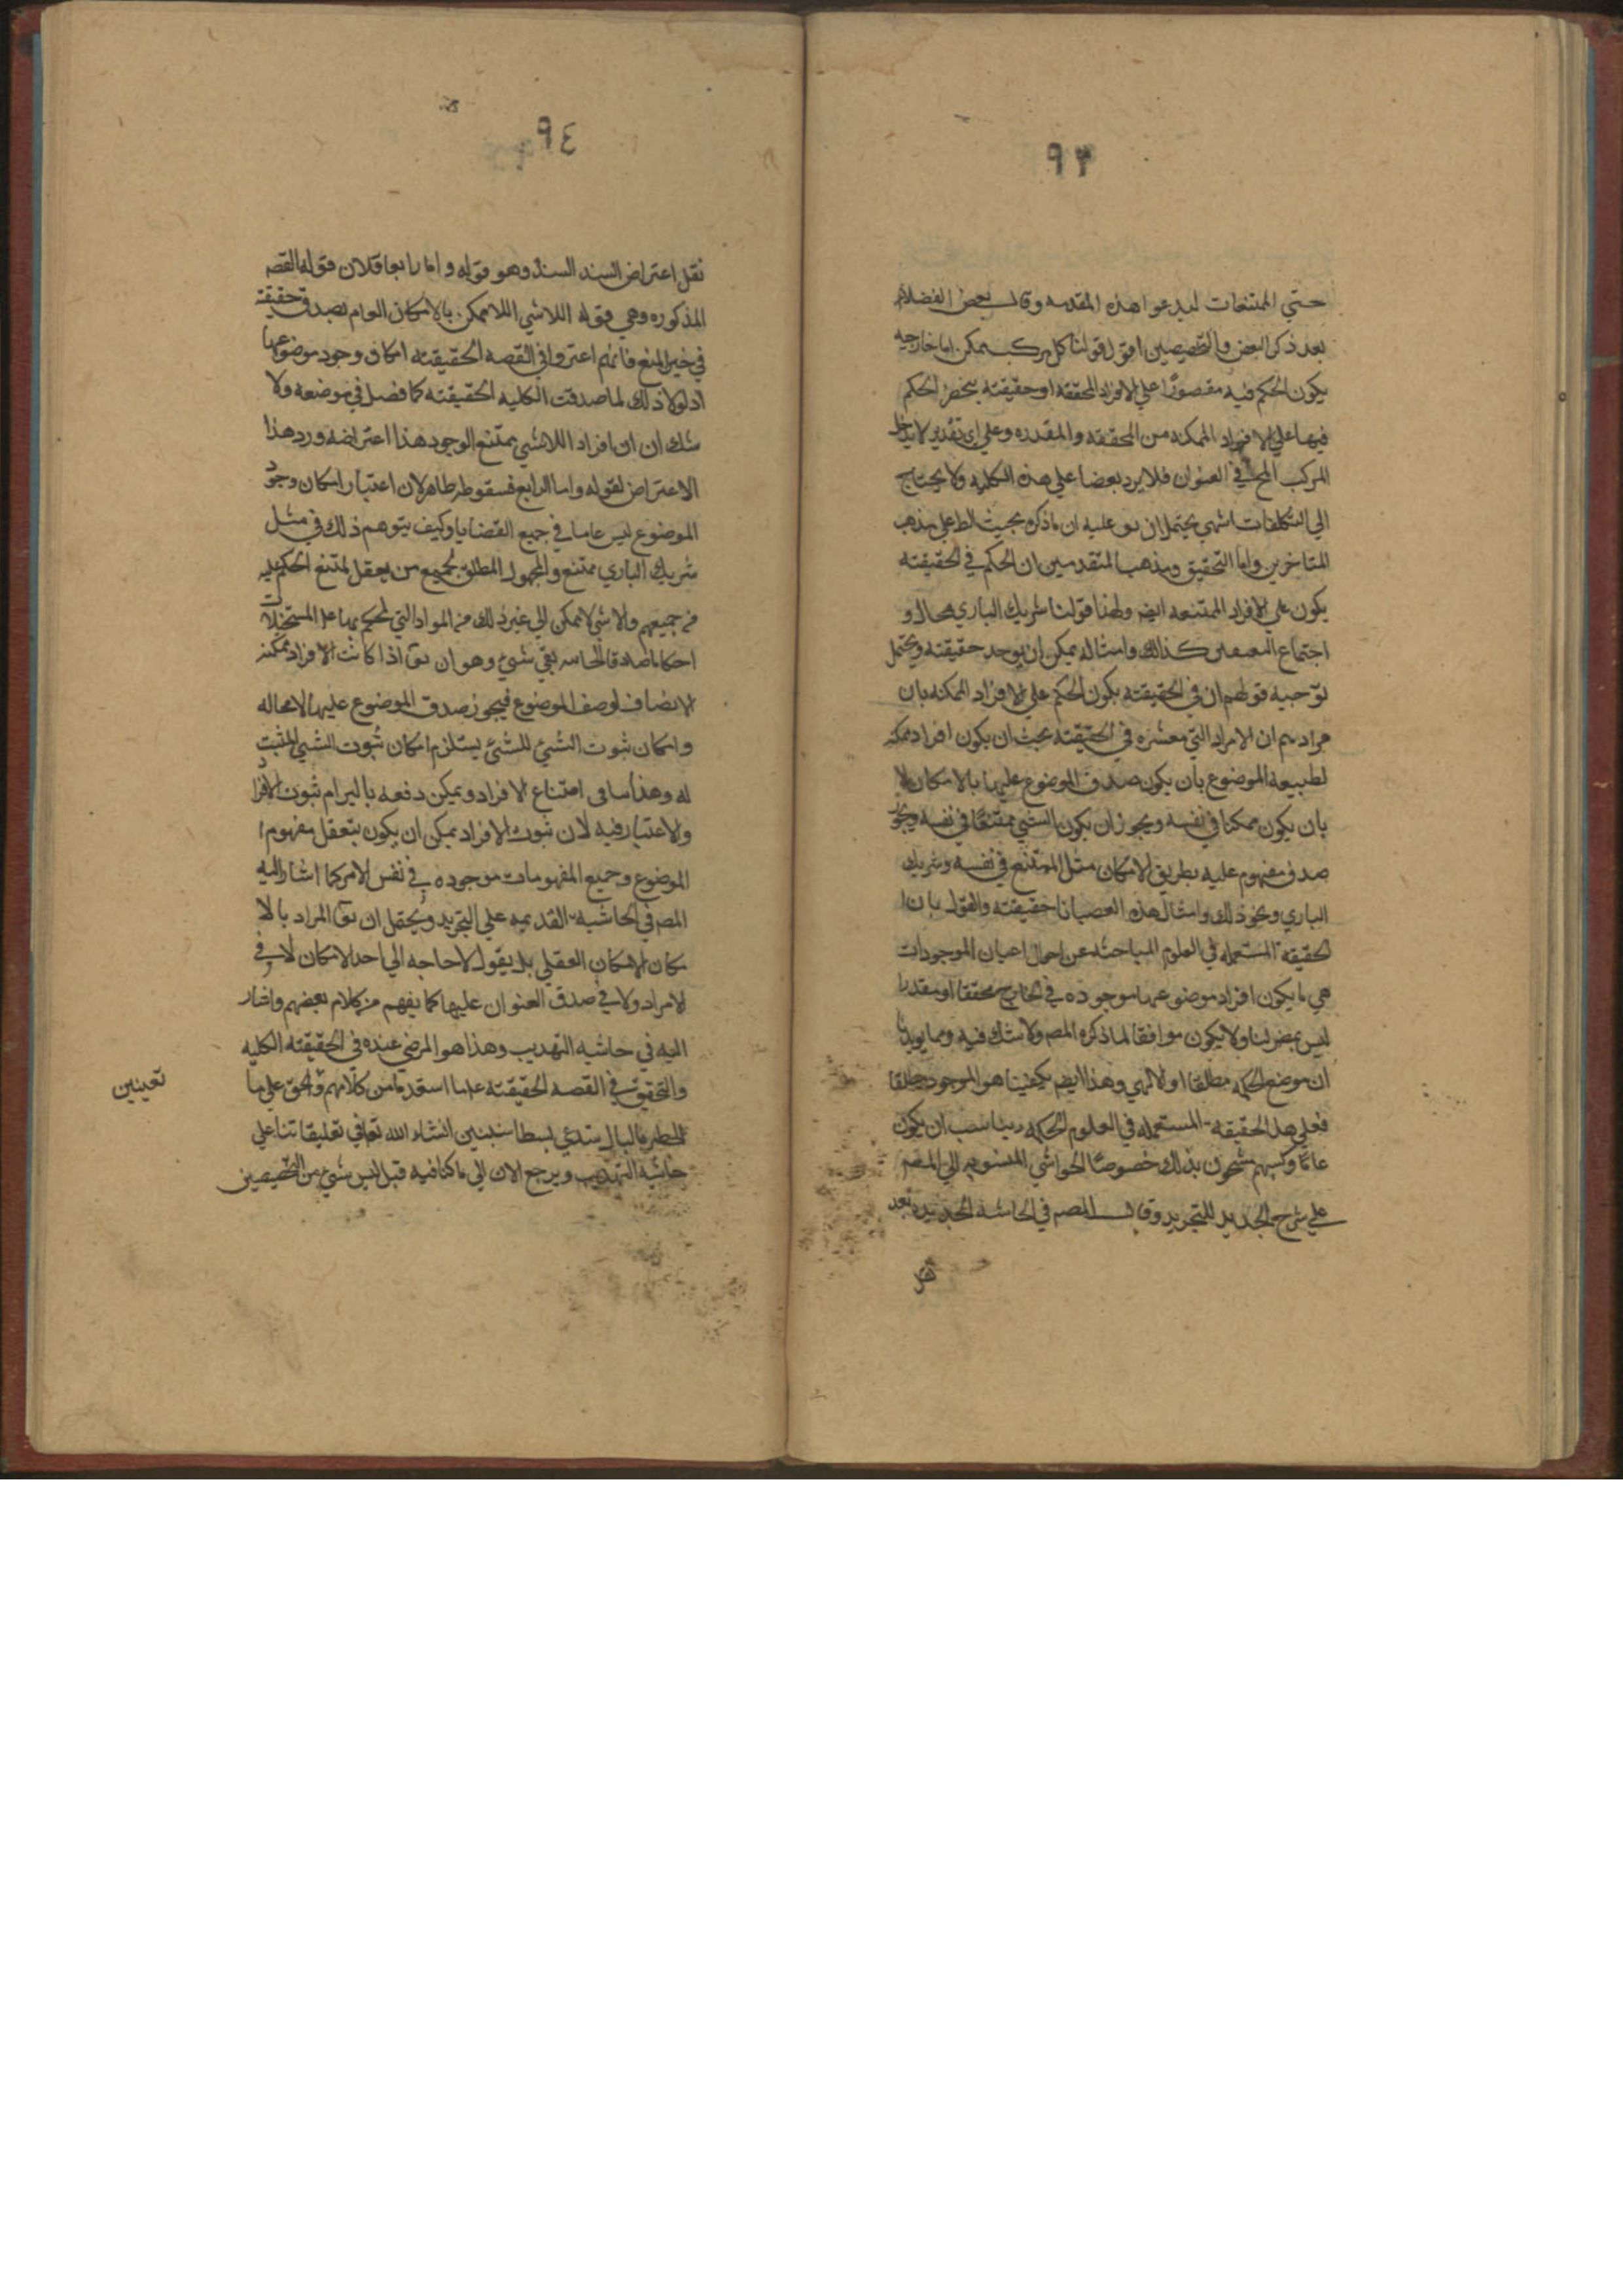 ٩٣
حتي الممتنعات لبدعوا هذه المقدمه وقال بعض الفضلاء
بعد ذكر النقض والتخصيصين اقول قولنا كل مركب ممكن اما خارجيه
يكون الحكم فيه مقصورًا علي الافراد المحققه او حقيقته يخص الحكم
فيها علي الافراد الممكنه من المحققه والمقدره وعلي اي تقدير لا يدخل
المركب المح في العنوان فلا يرد بعضا علي هذه الكليه ولا يحتاج
الي التكلفات انتهي يحتمل ان يق عليه ان ما ذكره بحيث الط علي مذهب
المتاخرين واما التحقيق ومذهب المتقدمين ان الحكم في الحقيقته
يكون علي الافراد الممتنعه ايضه ولهذا قولنا شريك الباري محال و
اجتماع كذلك وامثاله يمكن ان يوجد حقيقته ويحتمل
توحيه قولهم ان في الحقيقته يكون الحكم علي الافراد الممكنه بان
مرادهم ان الافراد التي معتبره في الحقيقته بحيث ان يكون افراد ممكنه
لطبيعه الموضوع بان يكون صدق الموضوع عليها بالامكان لا
بان يكون ممكنا في نفسه ويجوز ان يكون الشيي ممتنعًا في نفسه ويجوز
صدق مفهوم عليه بطريق الامكان مثل الممتنع في نفسه وشريك
الباري ونحو ذلك وامثال هذه حقيقته والقول بان ا
لحقيقة المستعمله في العلوم المباحثه عن احوال اعيان الموجودات
هي ما يكون افراد موضوعها موجوده في الخارج محققا او مقدرا
ليس بمضر لنا ولا يكون موافقا لما ذكره المصه ولا شك فيه ومما يويدنا
ان موضع الحكمه مطلقا او لالهي وهذا ايضه يكفينا هو الموجود مطلقا
فعلي هذا الحقيقة المستعمله في العلوم الحكمه يناسب ان يكون
عامًا وكتبهم مشحون بذلك خصوصًا الحواشي المنسوبه الي المصه
علي شرح الجديد للتجريد وقال المصه في الحاشيه الجديده بعد
نقل
٩٤
نقل اعتراض السيد السند وهو قوله واما رابعا فلان قوله القصه
المذكوره وهي قوله اللاشي اللاممكن بالامكان العام يصدق حقيقته
في خير المنع فانهم اعتبروا في القصه الحقيقته امكان وجود موضوعها
اذ لولا ذلك لما صدقت الكليه الحقيقته كما فصل في موضعه ولا
شك ان افراد اللاشيي ممتنع الوجود هذا اعتراضه ورد هذا
الاعتراض بقوله واما الرابع فسقوطه ظاهر لان اعتبار امكان وجود
الموضوع ليس عاما في جميع القضايا وكيف يتوهم ذلك في مثل
شريك الباري ممتنع والمجهول المطلق لجميع من يعقل لمتنع الحكم عليه
من جميعهم والاشي لا ممكن الي غير ذلك من المواد التي لحكم بها علي المستحيلات
احكاما صادقا بقي شيئ وهو ان يق اذا كانت الافراد ممكنه
الاتصاف لوصف الموضوع فيجوز صدق الموضوع عليها لا محاله
وامكان ثبوت الشيئ للشيئ يستلزم امكان ثبوت الشيي المثبت
له وهذا امتناع الافراد ويمكن دفعه ثبوت الافراد
ولا اعتبار فيه لان ثبوت الافراد يمكن ان يكون بتعقل مفهوم ا
الموضوع وجميع المفهومات موجوده في نفس الامر كما اشار اليه
المصه في الحاشية القديمه علي التجريد ويحتمل ان يق المراد بالا
مكان الامكان العقلي بل يقول لا حاجه الي احد الامكان لا في
لافراد ولا في صدق العنوان عليها كما يفهم من كلام بعضهم واشار
اليه في حاشيه التهديب وهذا هو المرضي عنده في الحقيقته الكليه
والتحقيق في القصه الحقيقته من كلامهم والحق علي ما
بالبال يستدعي بسطا سنبين انشاء الله تعالي في تعليقاتنا علي
حاشية التهذيب ويرجع الان الي ما كنا فيه قبل ليس شيئ من التخصيصين
تعينين